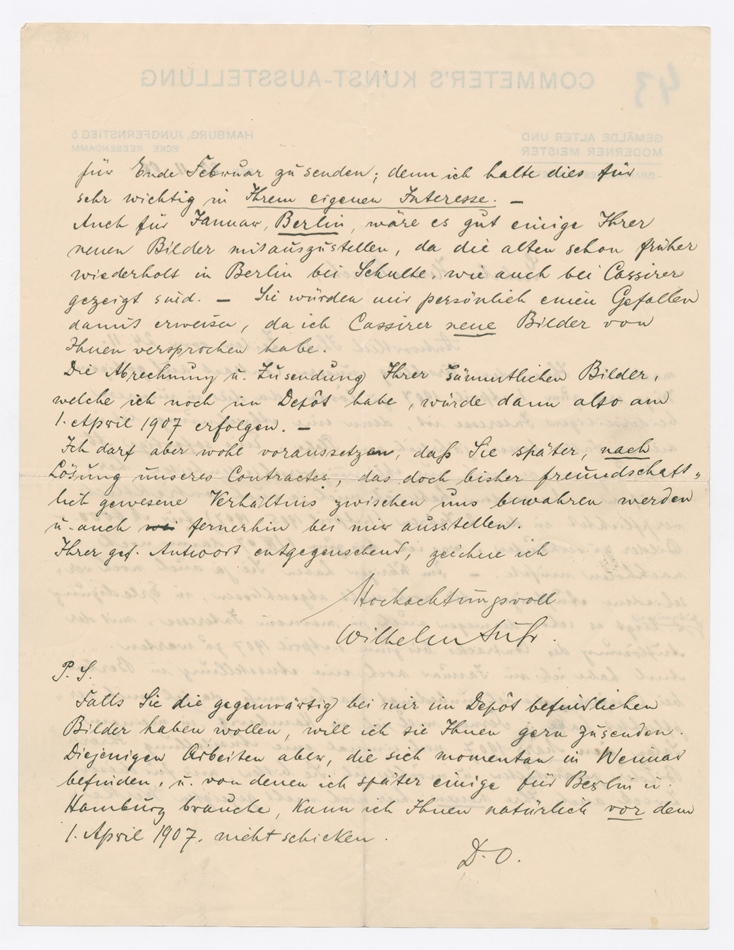 für Ende Februar zu senden; denn ich halte dies für
sehr wichtig in Ihrem eigenen Interesse. —
Auch für Januar, Berlin, wäre es gut einige Ihrer
neuen Bilder mitauszustellen, da die alten schon früher
wiederholt in Berlin bei Schulte, wie auch bei Cassirer
gezeigt sind. — Sie würden mir persönlich einen Gefallen
damit erweisen, da ich Cassirer neue Bilder von
Ihnen versprochen habe.
Die Abrechnung u. Zusendung Ihrer sämmtlichen Bilder,
welche ich noch im Depôt habe, würde dann also am
1. April 1907 erfolgen. —
Ich darf aber wohl voraussetzen, daß Sie später, nach
Lösung unseres Contractes, das doch bisher freundschaft-
lich gewesene Verhältnis zwischen uns bewahren werden
u. auch fernerhin bei mir ausstellen.
Ihrer gef. Antwort entgegensehend, zeichne ich
Hochachtungsvoll
Wilhelm Suhr.
P. S.
Falls Sie die gegenwärtig bei mir im Depôt befindlichen
Bilder haben wollen, will ich sie Ihnen gern zusenden.
Diejenigen Arbeiten aber, die sich momentan in Weimar
befinden, u. von denen ich später einige für Berlin u.
Hamburg brauche, kann ich Ihnen natürlich vor dem
1. April 1907. nicht schicken.
D. O.
COMMETER'S KUNST-AUSSTELLUNG
43
GEMÄLDE ALTER UND
MODERNER MEISTER
HAMBURG, JUNGFERNSTIEG 5
ECKE REESENDAMM